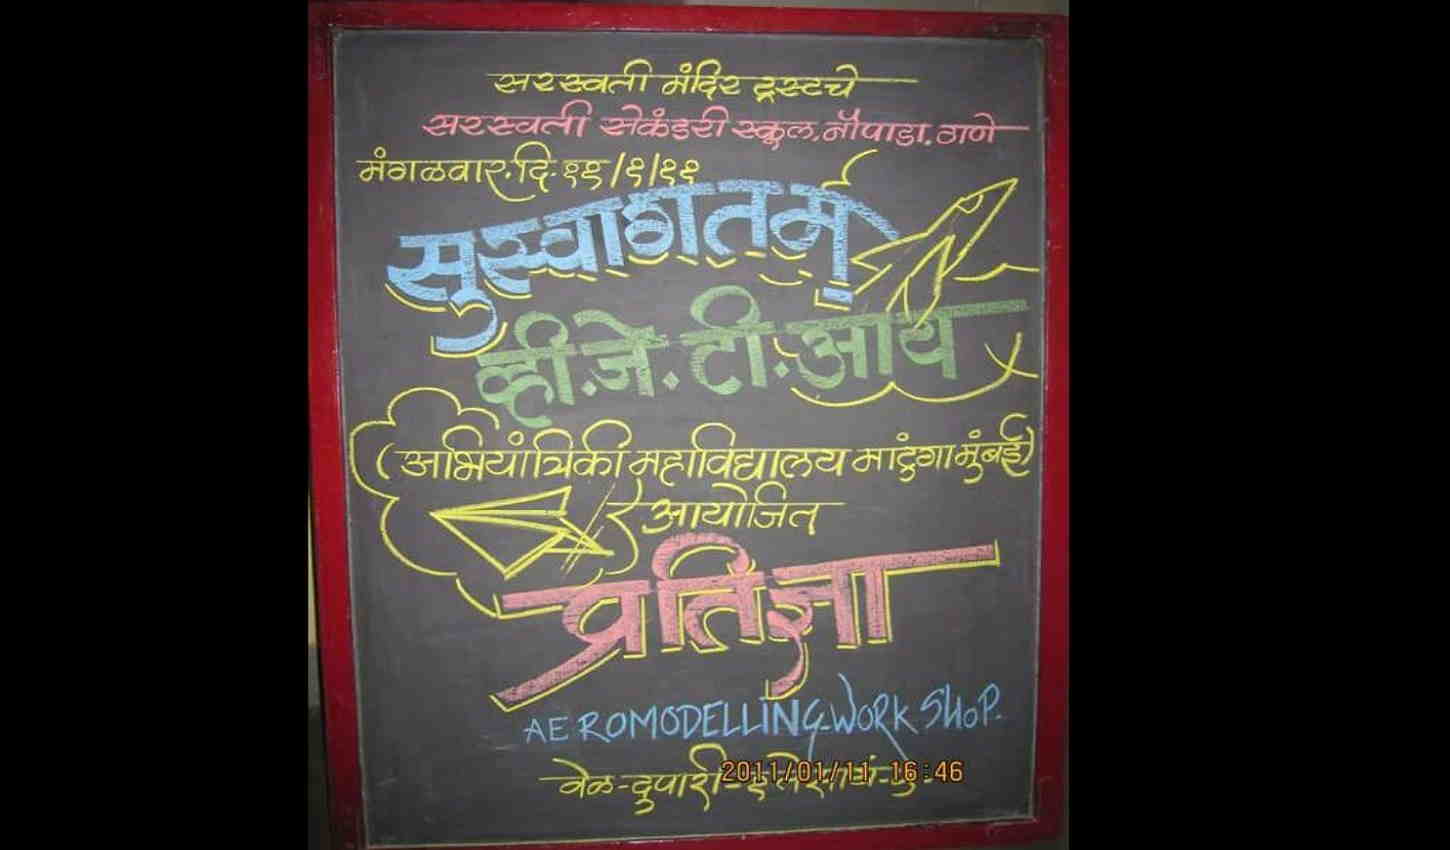 सरस्वती मंदिर ट्रस्टचे
सरस्वती सेकंडरी स्कूल, नौपाडा. ठाणे
मंगळवार. दि. ११/१/११
सुस्वागतम्
व्ही.जे.टी.आय
(अभियांत्रिकी महाविद्यालय माटुंगा मुंबई)
आयोजित
प्रतिज्ञा
AEROMODELLING-WORKSHOP.
वेळ-दुपारी
2011/01/11 16:46